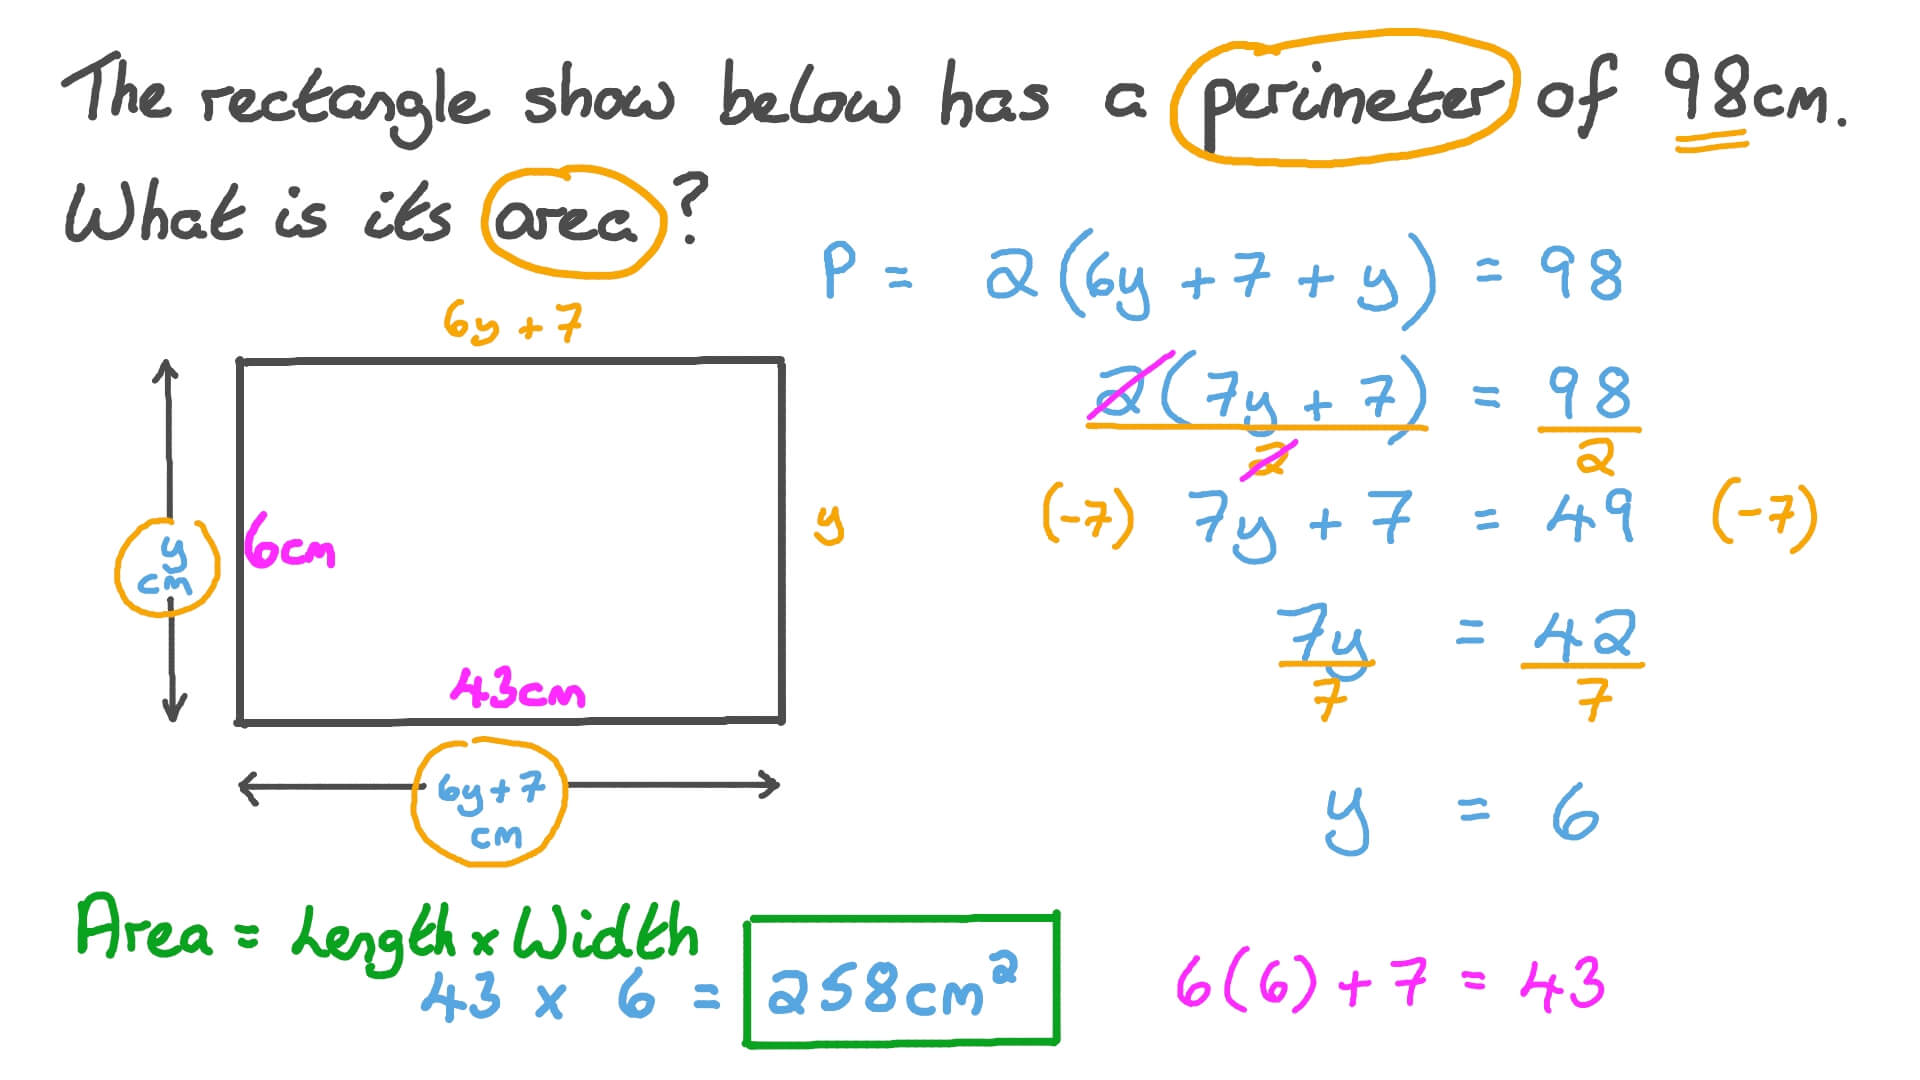 The rectangle show below has a perimeter of 98cm.
What is its area?
P = 2(6y + 7 + y) = 98
6y + 7
2(7y + 7) = 98
2 2
(-7) 7y + 7 = 49 (-7)
y
cm
6cm
y
7y = 42
7 7
43cm
6y + 7
cm
y = 6
Area = Length x Width
43 x 6 = 258cm²
6(6) + 7 = 43